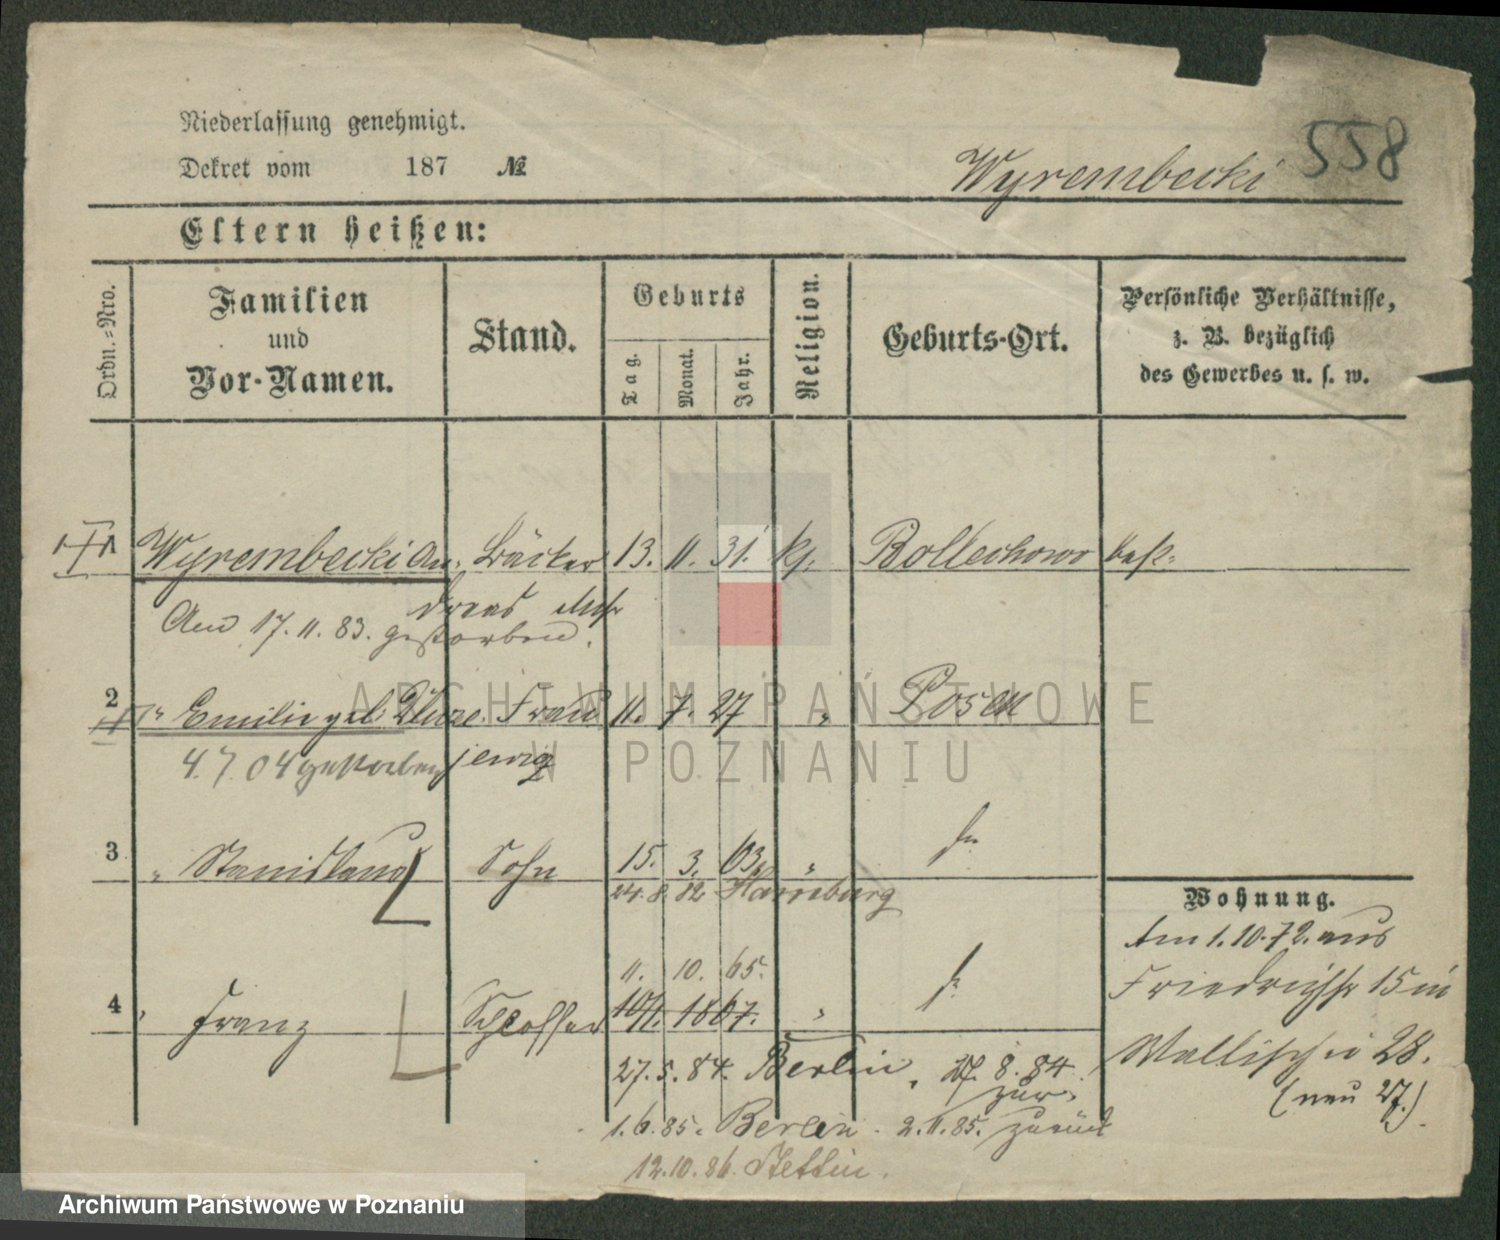 558
Niederlassung genehmigt.
Dekret vom 187 №
Wyrembecki
Eltern heißen:
Ordn.-Nro.
Familien und Vor-Namen.
Stand.
Geburts
Tag. Monat. Jahr.
Religion.
Geburts-Ort.
Persönliche Verhältnisse,
z. B. bezüglich
des Gewerbes u. s. w.
Wyrembecki An- Bäcker 13. 11. 31. kg.
dreas
Am 17. 11. 83. gestorben.
2 " Emilie geb. Frau 11. 7. 27 " Posen
4. 7. 04 gestorben
3 " Stanislaus Sohn 15. 3. 63. "
24. 8. 82 Hamburg
11. 10. 65.
4 " Franz Schlosser 1867. "
27. 5. 84. Berlin, 27. 8. 84. zur.
1. 6. 85. Berlin. 2. 11. 85. zurück
12. 10. 86. Stettin.
Wohnung.
Am 1. 10. 72. aus
Friedrichstr 15 in
Wallischei 28.
(neu 27.)
ARCHIWUM PAŃSTWOWE
W POZNANIU
Archiwum Państwowe w Poznaniu